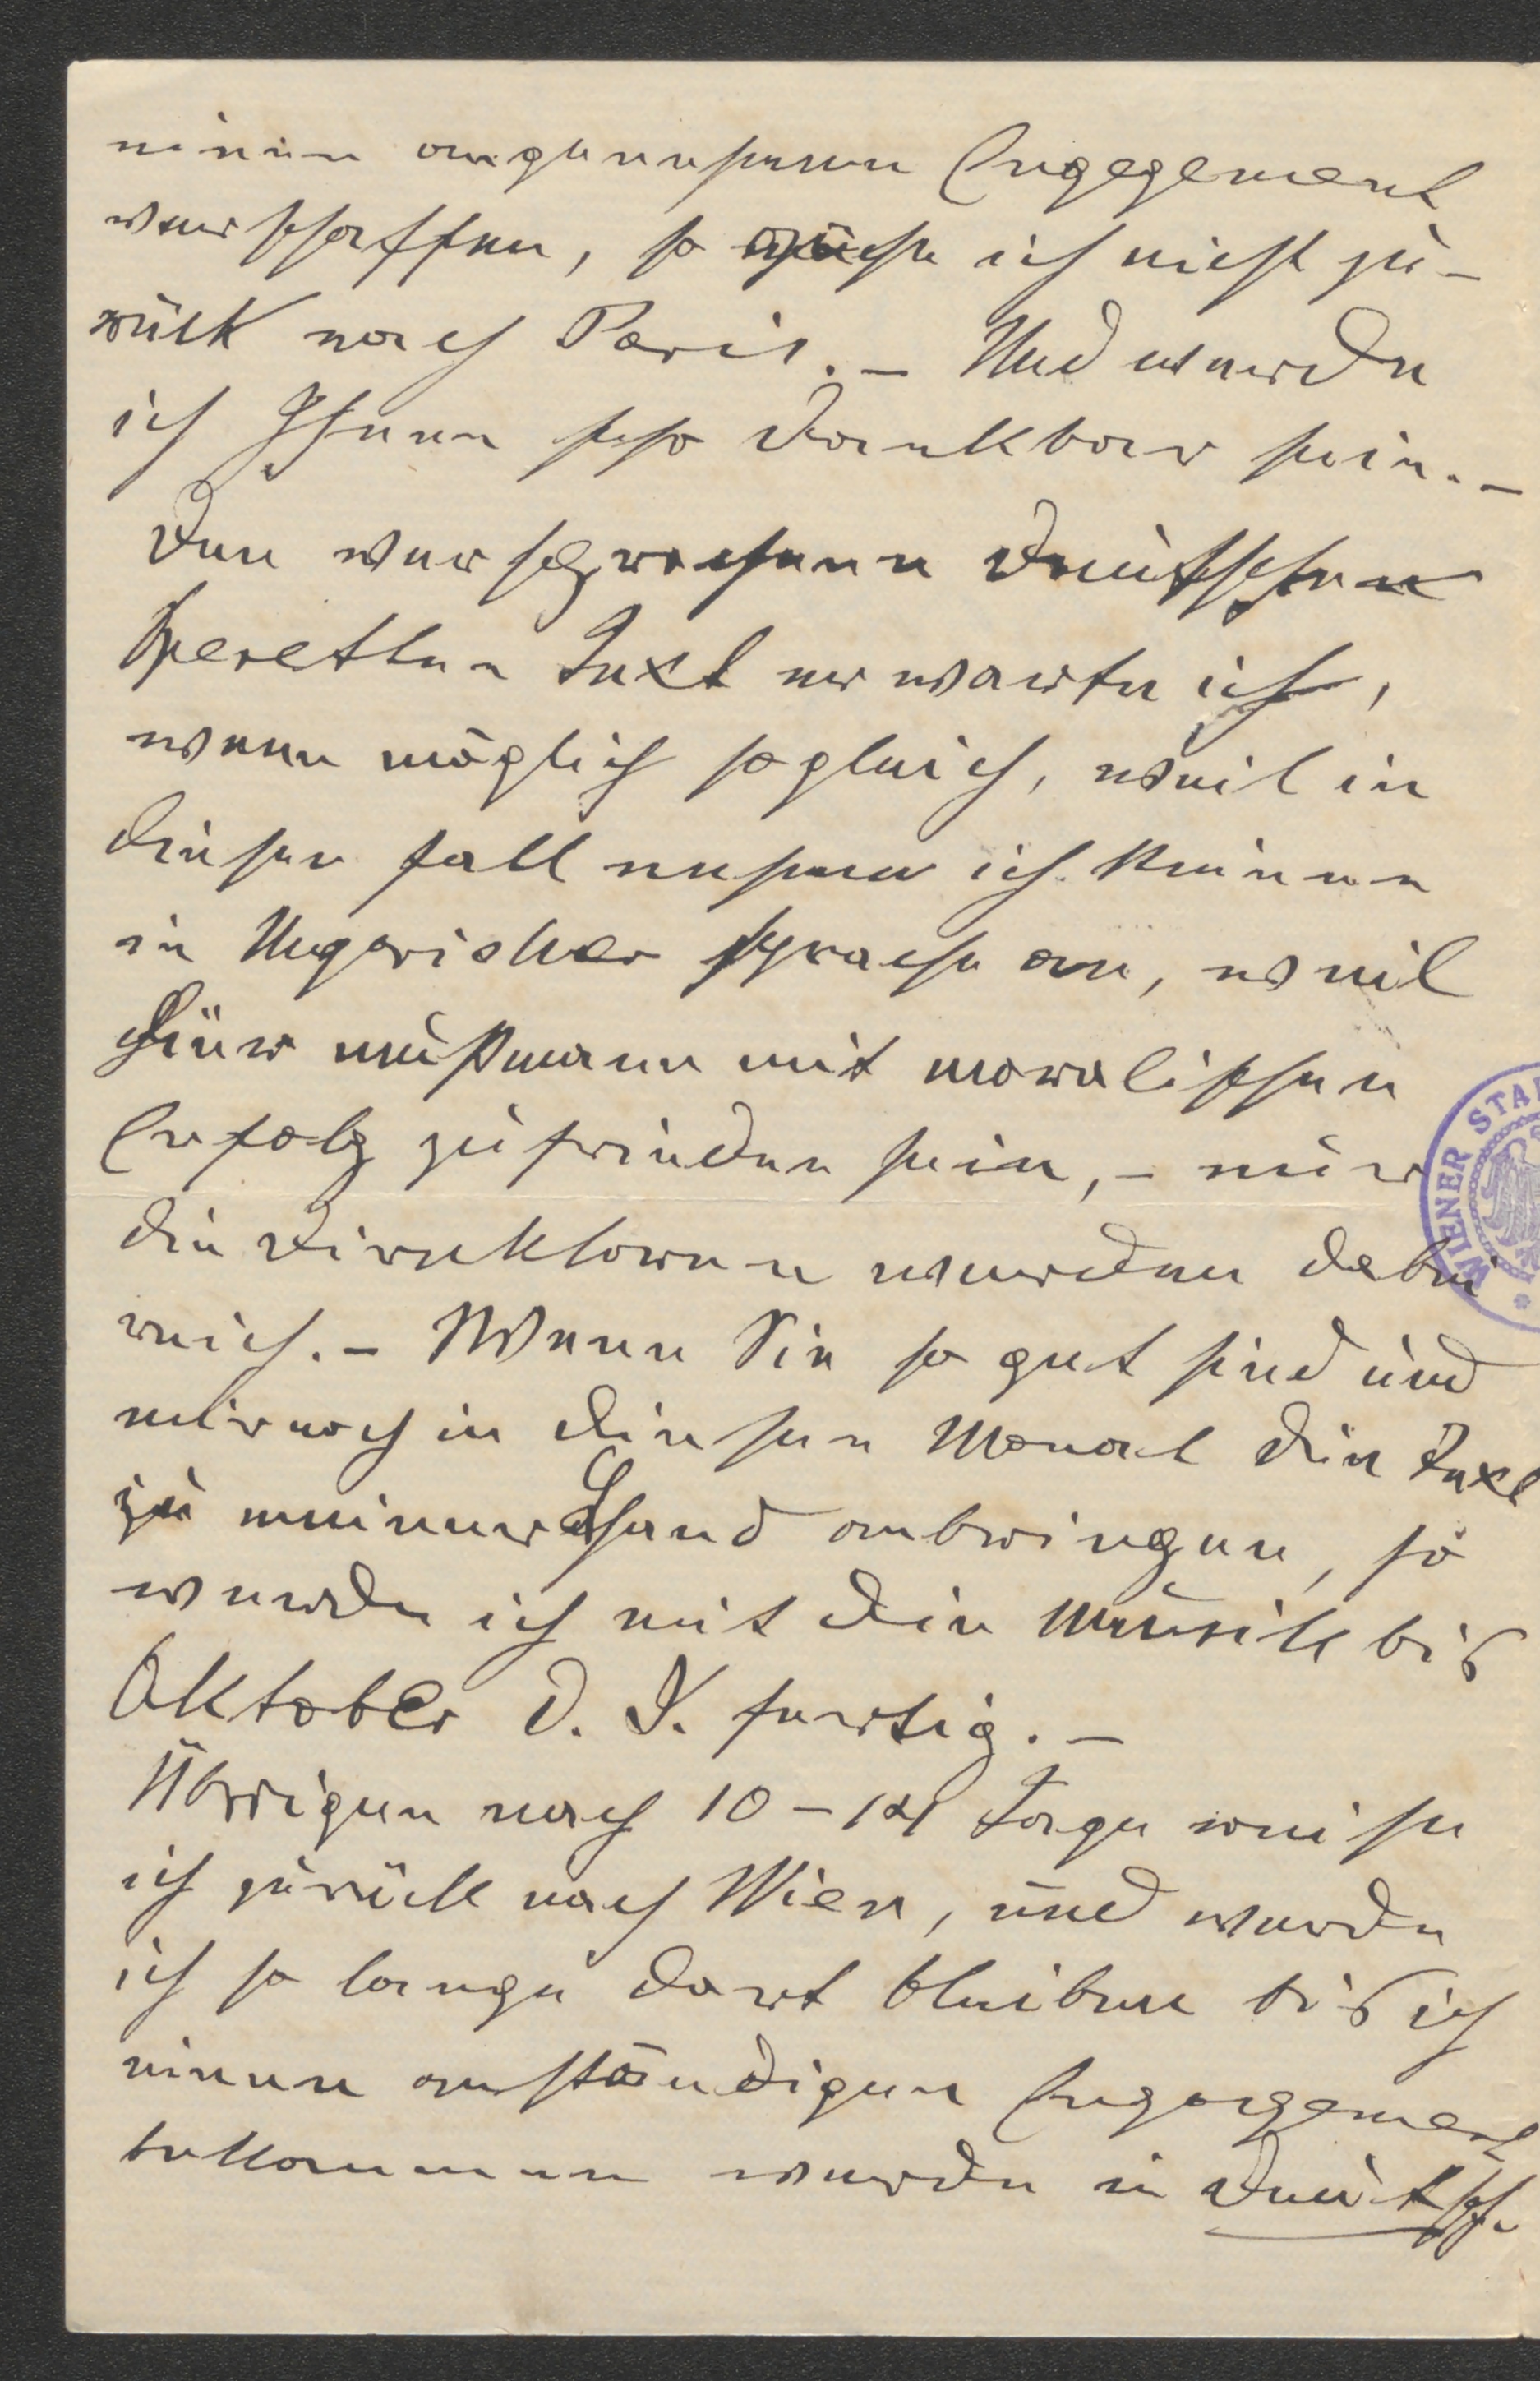 einen angenehmen Engegement
verschaffen, so gehe ich nicht zu-
rück nach Paris. – Und werde
ich Ihnen sehr dankbar sein. –
Den versprochenen deutschen
Operetten Text erwarte ich,
wenn möglich sogleich, weil in
diesen fall nehme ich keinen
in Ungarischer sprache an, weil
hier muß mann mit moralischen
Erfolg zufrieden sein, – nur
die Direktoren werden dabei
reich. – Wenn Sie so gut sind und
mir noch in diesen Monat die Text
zu meiner Hand anbringen, so
werde ich mit die Musik bis
Oktober d. J. fertig. –
Übrigen nach 10–14 Tage reise
ich zurück nach Wien, und werde
ich so lange dort bleiben bis ich
einen anständigen Engagement
bekommen werde in Deutsch.
WIENER STA